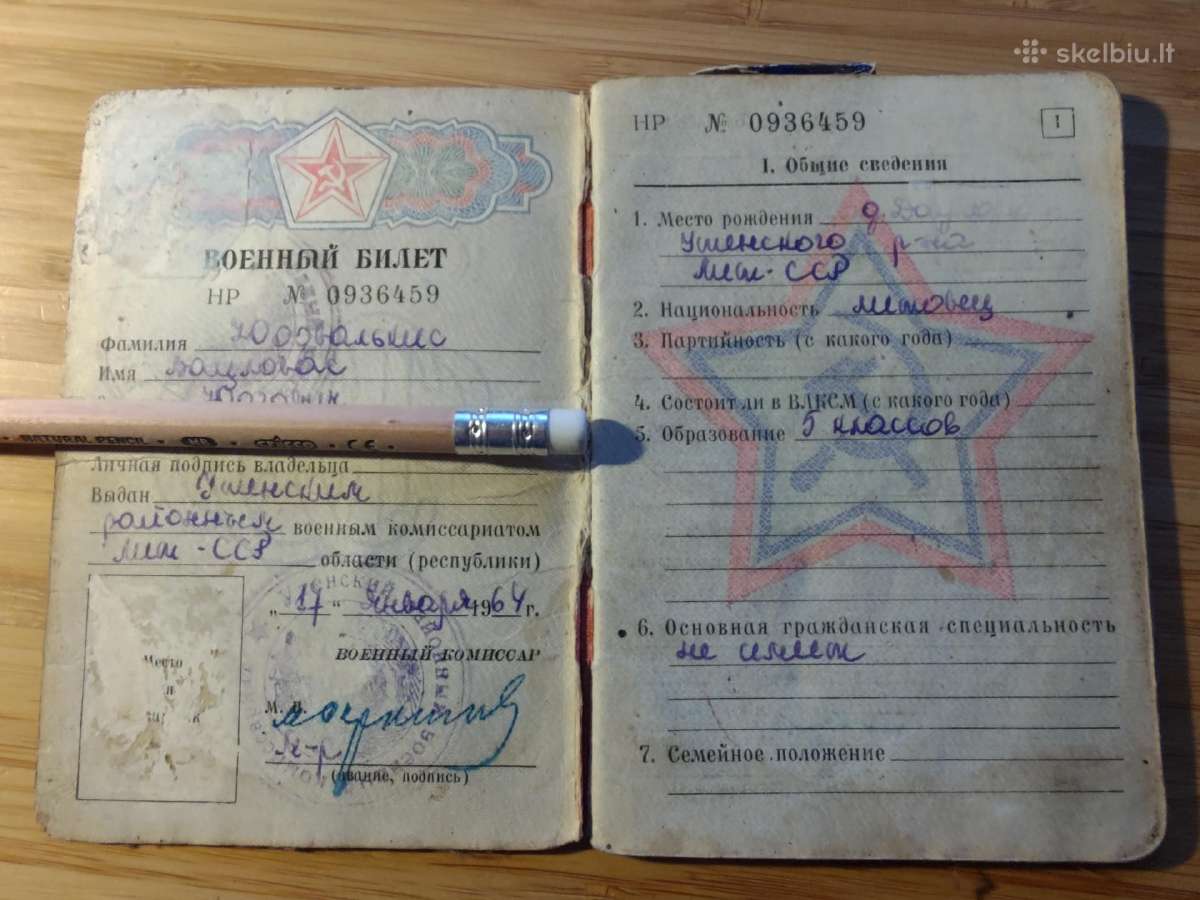 skelbiu.lt
ВОЕННЫЙ БИЛЕТ
НР № 0936459
Фамилия Юодвалькис
Имя
NATURAL PENCIL HB CE
Личная подпись владельца
Выдан Утенским
районным военным комиссариатом
Лит-ССР области (республики)
„17" января 1964 г.
ВОЕННЫЙ КОМИССАР
М. П.
м-р
(звание, подпись)
Место
НР № 0936459
1
I. Общие сведения
1. Место рождения д.
Утенского р-на
Лит-ССР
2. Национальность литовец
3. Партийность (с какого года)
4. Состоит ли в ВЛКСМ (с какого года)
5. Образование 5 классов
6. Основная гражданская специальность
не имеет
7. Семейное положение